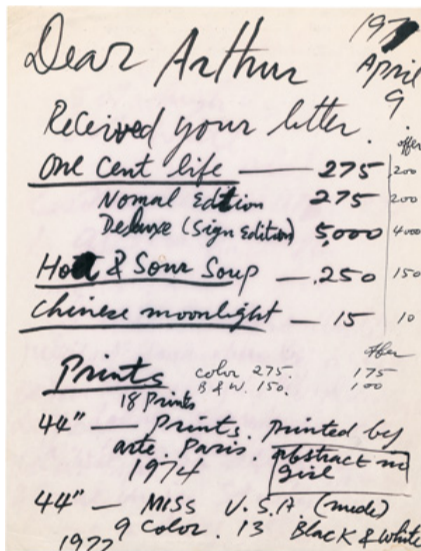 Dear Arthur
April
9
Received your letter.
offer
One Cent life — 275 200
Nomal Edition 275 200
Deluxe (Sign Edition) 5,000 4000
Hot & Sour Soup — 250 150
Chinese moonlight — 15 10
offer
Prints color 275. 175
B & W. 150. 100
18 Prints
44" — Prints. printed by
arte. Paris. abstract
1974 girl
44" — MISS U.S.A (nude)
1972 9 Color. 13 Black & White